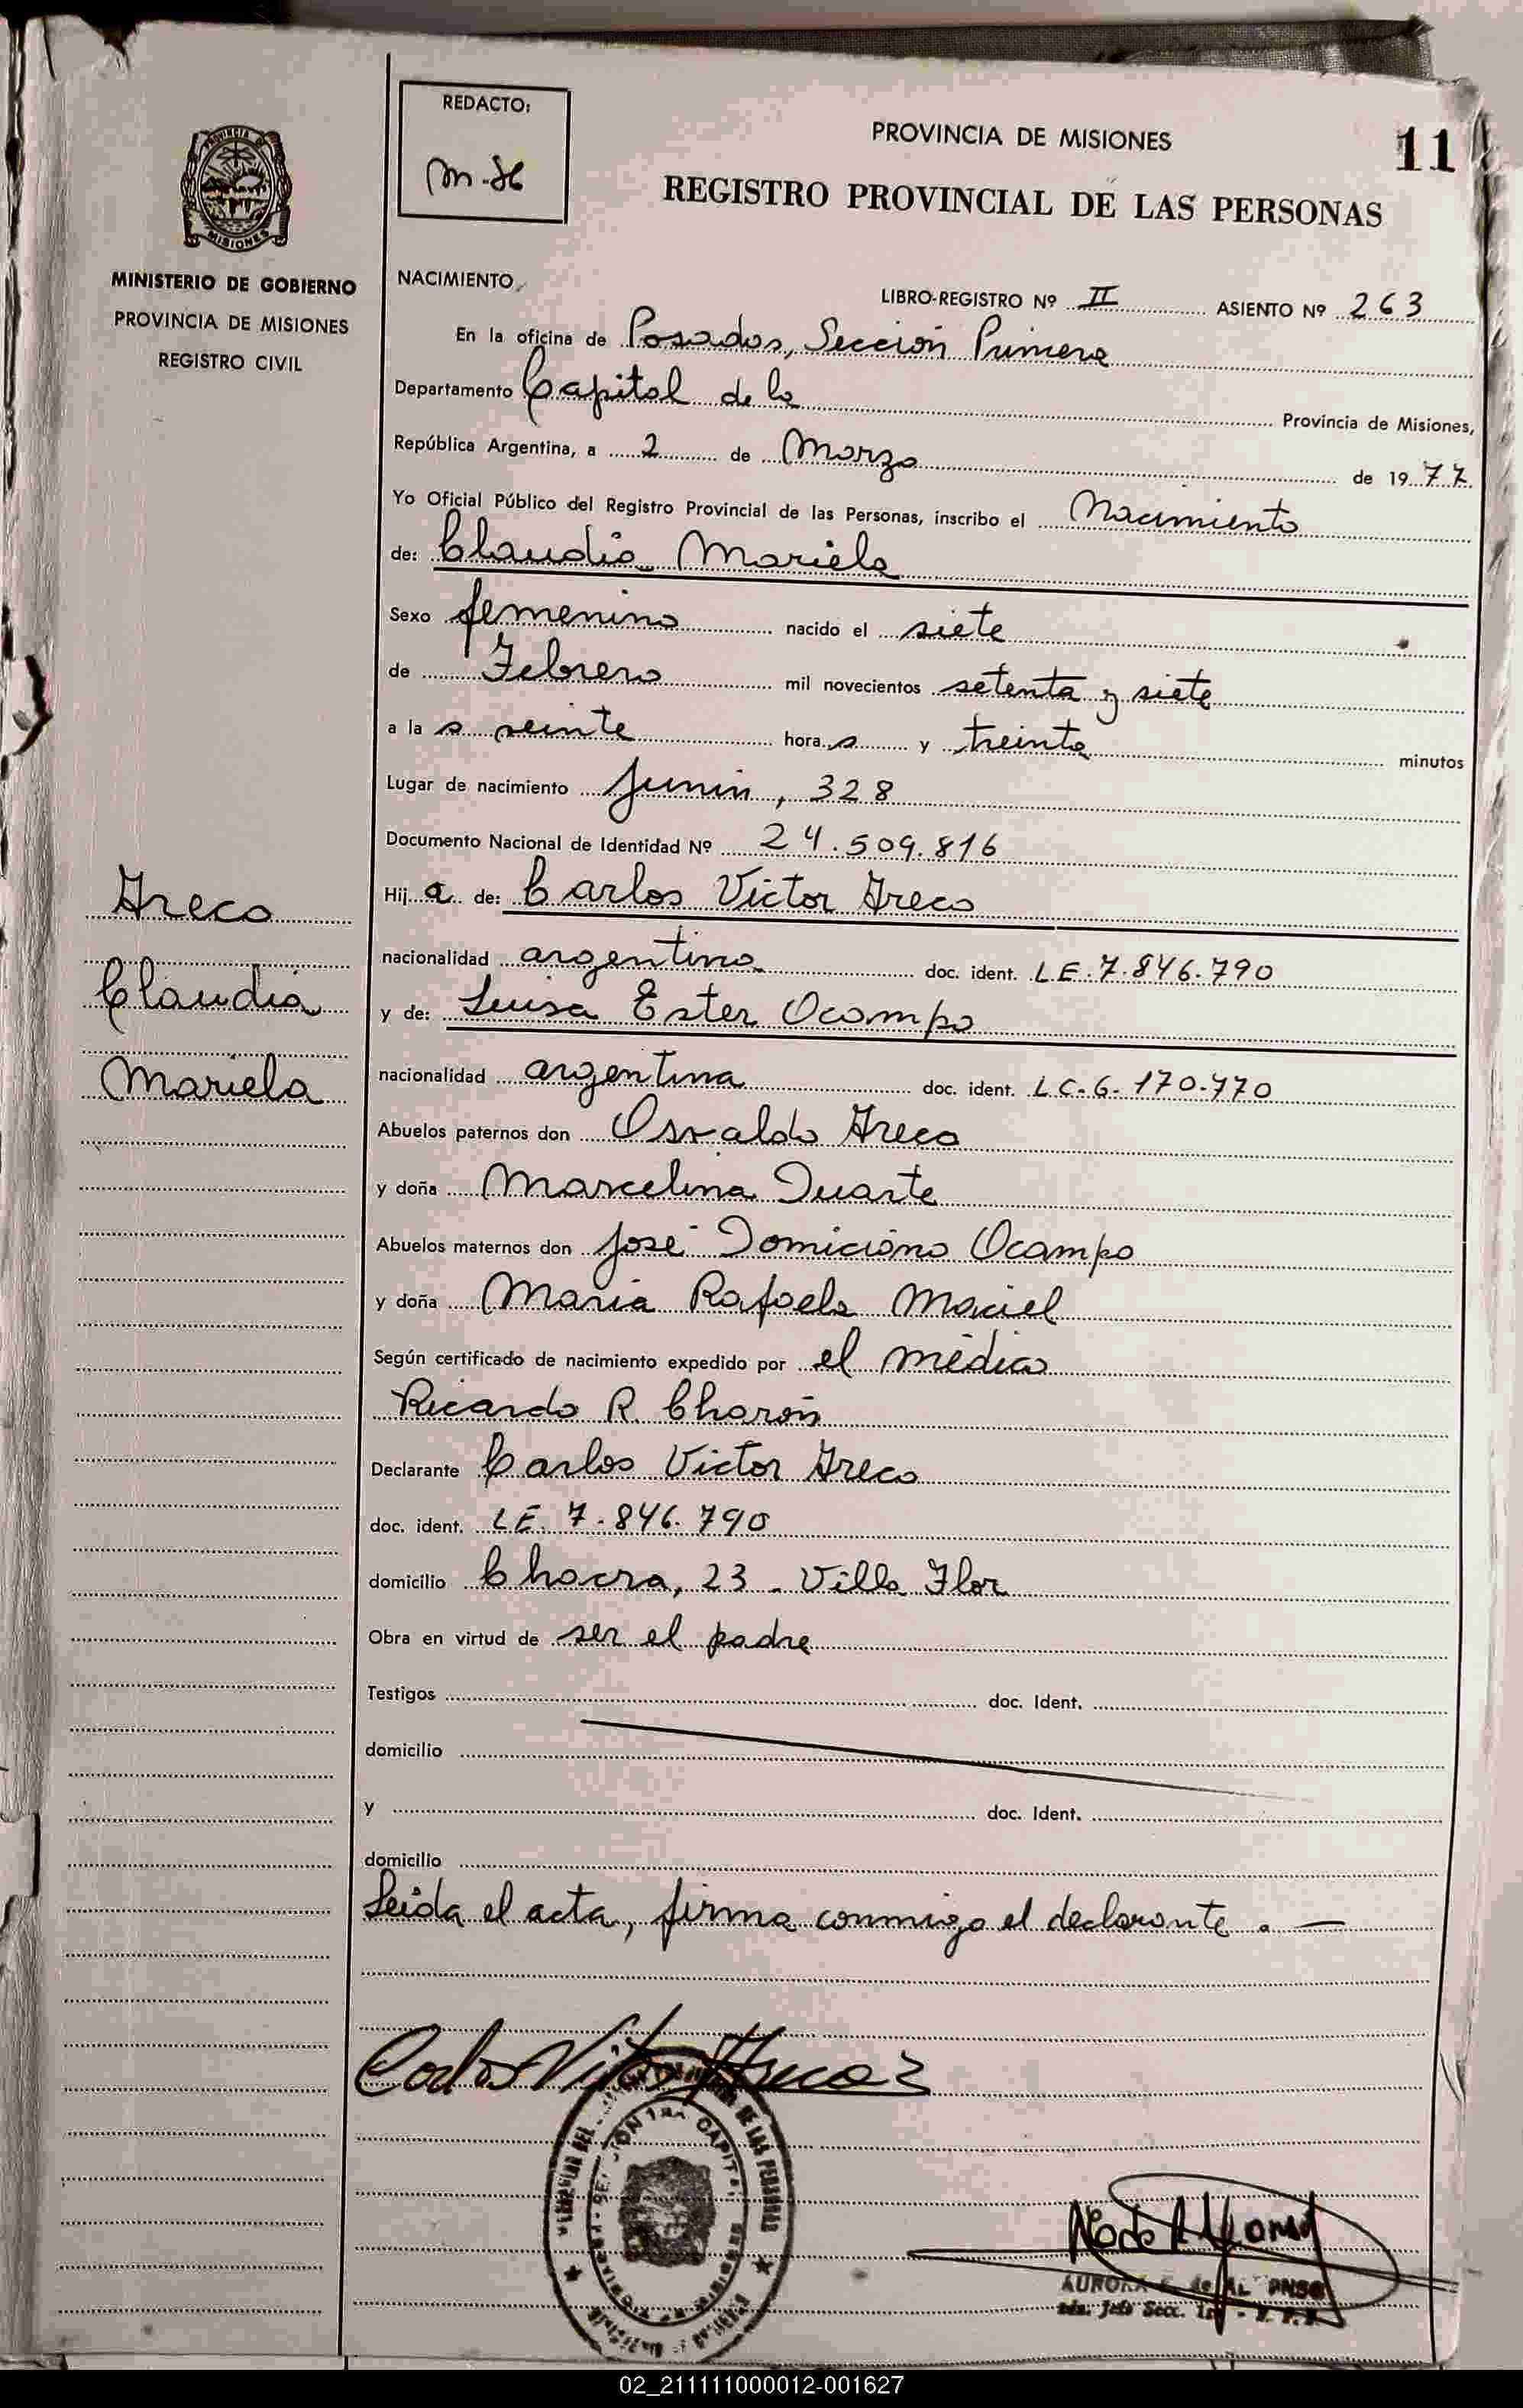 REDACTO:
m-86
PROVINCIA DE MISIONES
11
REGISTRO PROVINCIAL DE LAS PERSONAS
PROVINCIA
MISIONES
MINISTERIO DE GOBIERNO
PROVINCIA DE MISIONES
REGISTRO CIVIL
NACIMIENTO
LIBRO-REGISTRO Nº II ASIENTO Nº 263
En la oficina de Posadas, Sección Primera
Departamento Capital de la Provincia de Misiones,
República Argentina, a 2 de Marzo de 1977
Yo Oficial Público del Registro Provincial de las Personas, inscribo el Nacimiento
de: Claudia Mariela
Sexo femenino nacido el siete
de Febrero mil novecientos setenta y siete
a la s veinte hora s y treinta minutos
Lugar de nacimiento Junin, 328
Documento Nacional de Identidad Nº 24.509.816
Hij a de: Carlos Victor Areco
nacionalidad argentino doc. ident. LE.7.846.790
y de: Luisa Ester Ocampo
nacionalidad argentina doc. ident. LC.6.170.770
Abuelos paternos don Osvaldo Areco
y doña Marcelina Duarte
Abuelos maternos don José Domiciano Ocampo
y doña Maria Rafaela Maciel
Según certificado de nacimiento expedido por el médico
Ricardo R. Charón
Declarante Carlos Victor Areco
doc. ident. LE. 7.846.790
domicilio Chacra, 23 - Villa Flor
Obra en virtud de ser el padre
Testigos doc. Ident.
domicilio
y doc. Ident.
domicilio
Leida el acta, firma conmigo el declarante. —
Areco
Claudia
Mariela
Carlos Victor Areco
DE LAS PERSONAS
CAPITAL
AURORA
Jefe Secc.
02_211111000012-001627